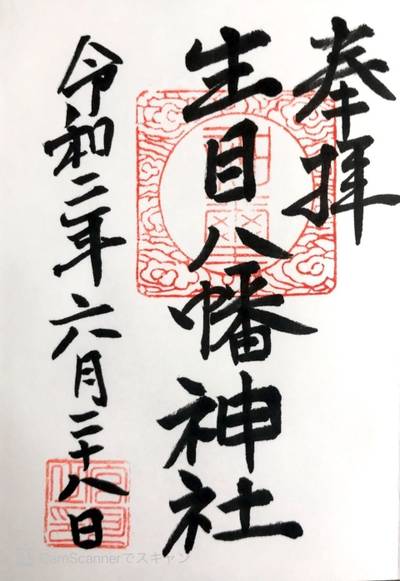 奉拝
生目八幡神社
令和二年六月二十八日
CamScannerでスキャン